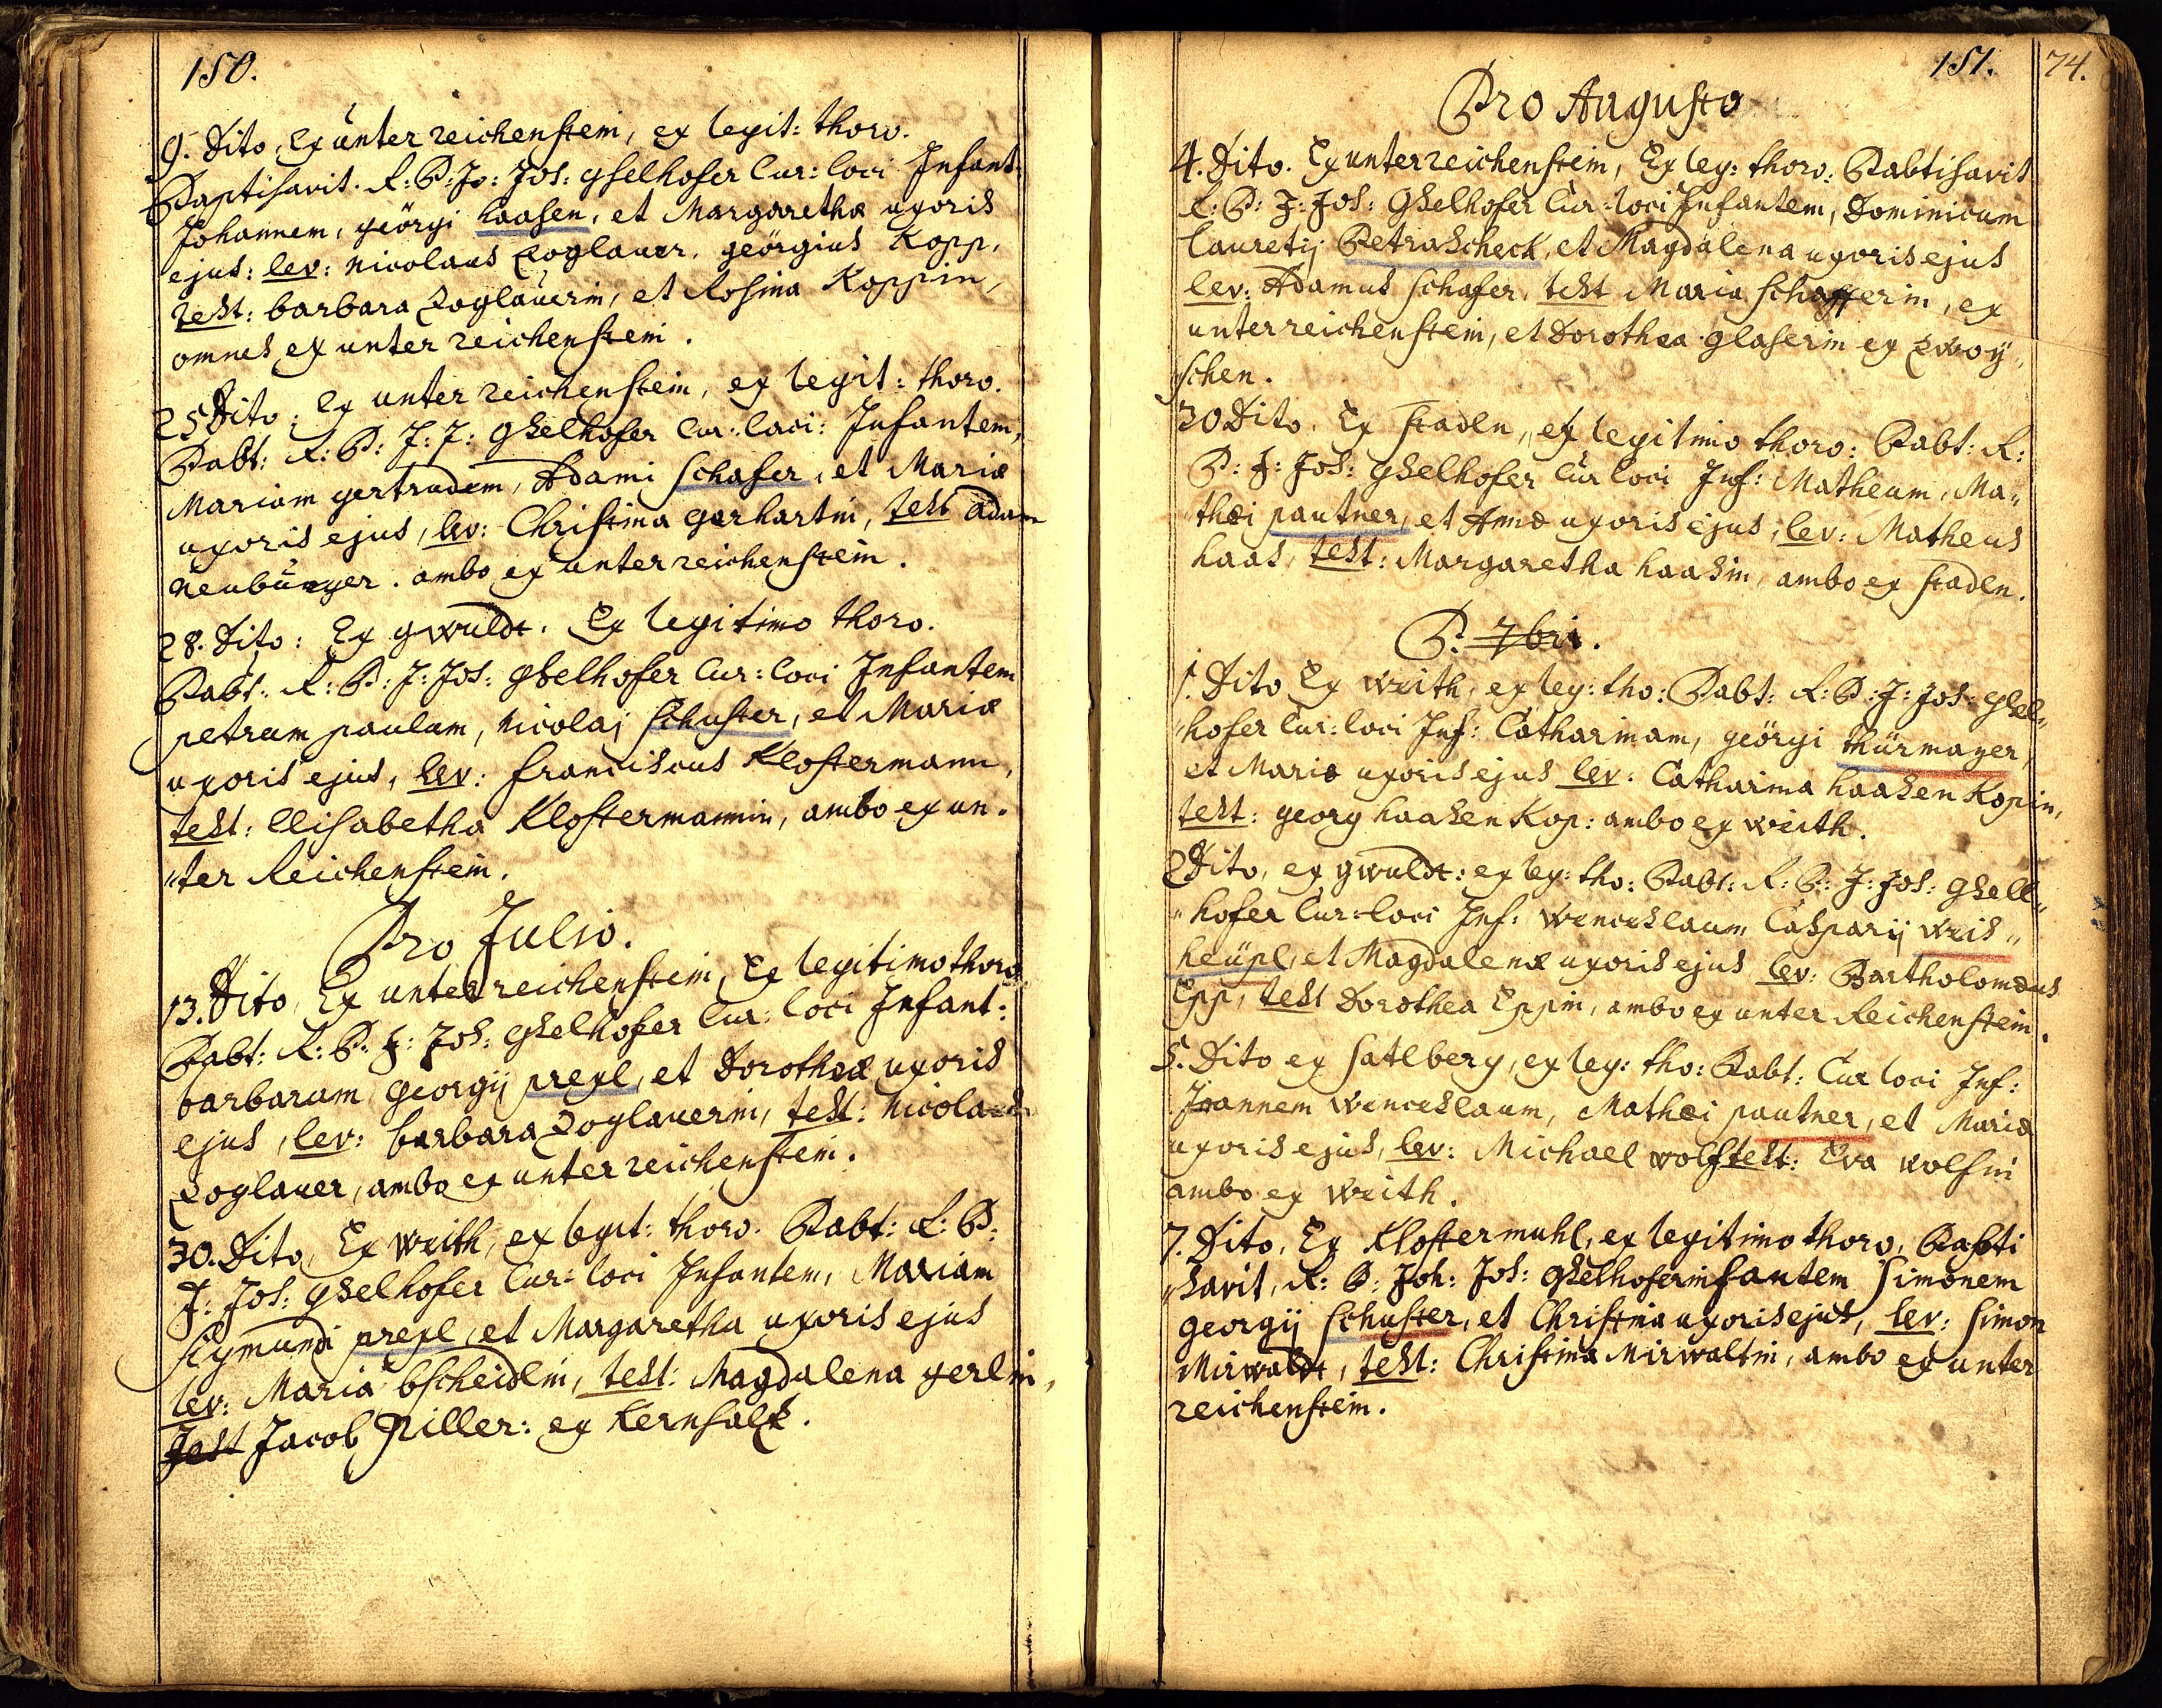 150.
9. Dito, Ex unter reichenstein, ex legit: thoro.
Baptisavit. R: P: Jo: Jos: gselhofer Cur: loci Infant:
Johannem, geörgi haasen, et Margarethæ uxoris
ejus: lev: Nicolaus Zoglauer, geörgius Kopp,
test: barbara Zoglauerin, et Rosina Koppin,
omnes ex unter reichenstein.
25 Dito: Ex unter reichenstein, ex legit: thoro.
Babt: R: P: J: J: gselhofer Cur: loci: Infantem,
Mariam gertrudem, Adami schafer, et Mariæ
uxoris ejus, lev: Christina gerhartin, test adam
Neubürger. ambo ex unter reichenstein.
28. Dito: Ex gwuldt. Ex legitimo thoro.
Babt: R: P: J: Jos: gselhofer Cur: loci Infantem
petrum paulum, Nicolaj schuster, et Mariæ
uxoris ejus, lev: franciscus Klostermann,
test: Elisabetha Klostermannin, ambo ex un-
"ter Reichenstein.
Pro Julio.
13. Dito, Ex unter reichenstein, Ex legitimo thoro
Babt: R: P: J: Jos: gselhofer Cur: loci Infant:
barbaram georgij prexl, et Dorotheæ uxoris
ejus, lev: barbara Zoglauerin, test: Nicolaus
Zoglauer, ambo ex unter reichenstein.
30. Dito, Ex weith, ex legit: thoro. Babt: R: P:
J: Jos: gselhofer Cur: loci Infantem, Mariam
sigmundi prexl, et Margaretha uxoris ejus
lev: Maria bscheidlin, test: Magdalena gerlin,
Test Jacob Piller: ex Kernsaltz.
151. 74.
Pro Augusto
4. Dito. Ex unterreichenstein, Ex leg: thoro: Babtisavit
R: P: J: Jos: Gselhofer Cur: loci Infantem, Dominicum
Lauretij Petrascheck, et Magdalena uxoris ejus
lev: Adamus schafer, test Maria schafferin, ex
unterreichenstein, et Dorothea glaserin ex Zwoy„
schen.
30 Dito. Ex stadln, ex legitimo thoro: Babt: R:
P: J: Jos: gselhofer Cur loci Inf: Matheum, Ma„
"thæi pautner, et Annæ uxoris ejus, lev: Matheus
haas, test: Margaretha haasin, ambo ex stadln.
P. 7bri.
1. Dito Ex weith, ex leg: tho: Babt: R: P: J: Jos: gsel„
"hofer Cur: loci Inf: Catharinam, geörgi thürmayer,
et Mariæ uxoris ejus lev: Catharina haasen Kopin,
test: georg haasen Kop: ambo ex weith.
2 Dito, ex gwuldt: ex leg: tho: Babt: R: P: J: Jos: gsell„
"hofer Cur: loci Inf: Wenceslaum Casparij weis„
heüpl, et Magdalenæ uxoris ejus lev: Bartholomæus
Epp, test Dorothea Eppin, ambo ex unter Reichenstein.
5. Dito ex satlberg, ex leg: tho: Babt: Cur loci Inf:
Joannem Wenceslaum, Mathæi pautner, et Mariæ
uxoris ejus, lev: Michael wolf test: Eva wolfin
ambo ex weith.
7. Dito, Ex Klostermuhl, ex legitimo thoro, Babti
"savit, R: P: Joh: Jos: gselhofer infantem simonem
georgij schuster, et Christina uxoris ejus, lev: simon
Mirwaldt, test: Christina Mirwaltin, ambo ex unter
reichenstein.